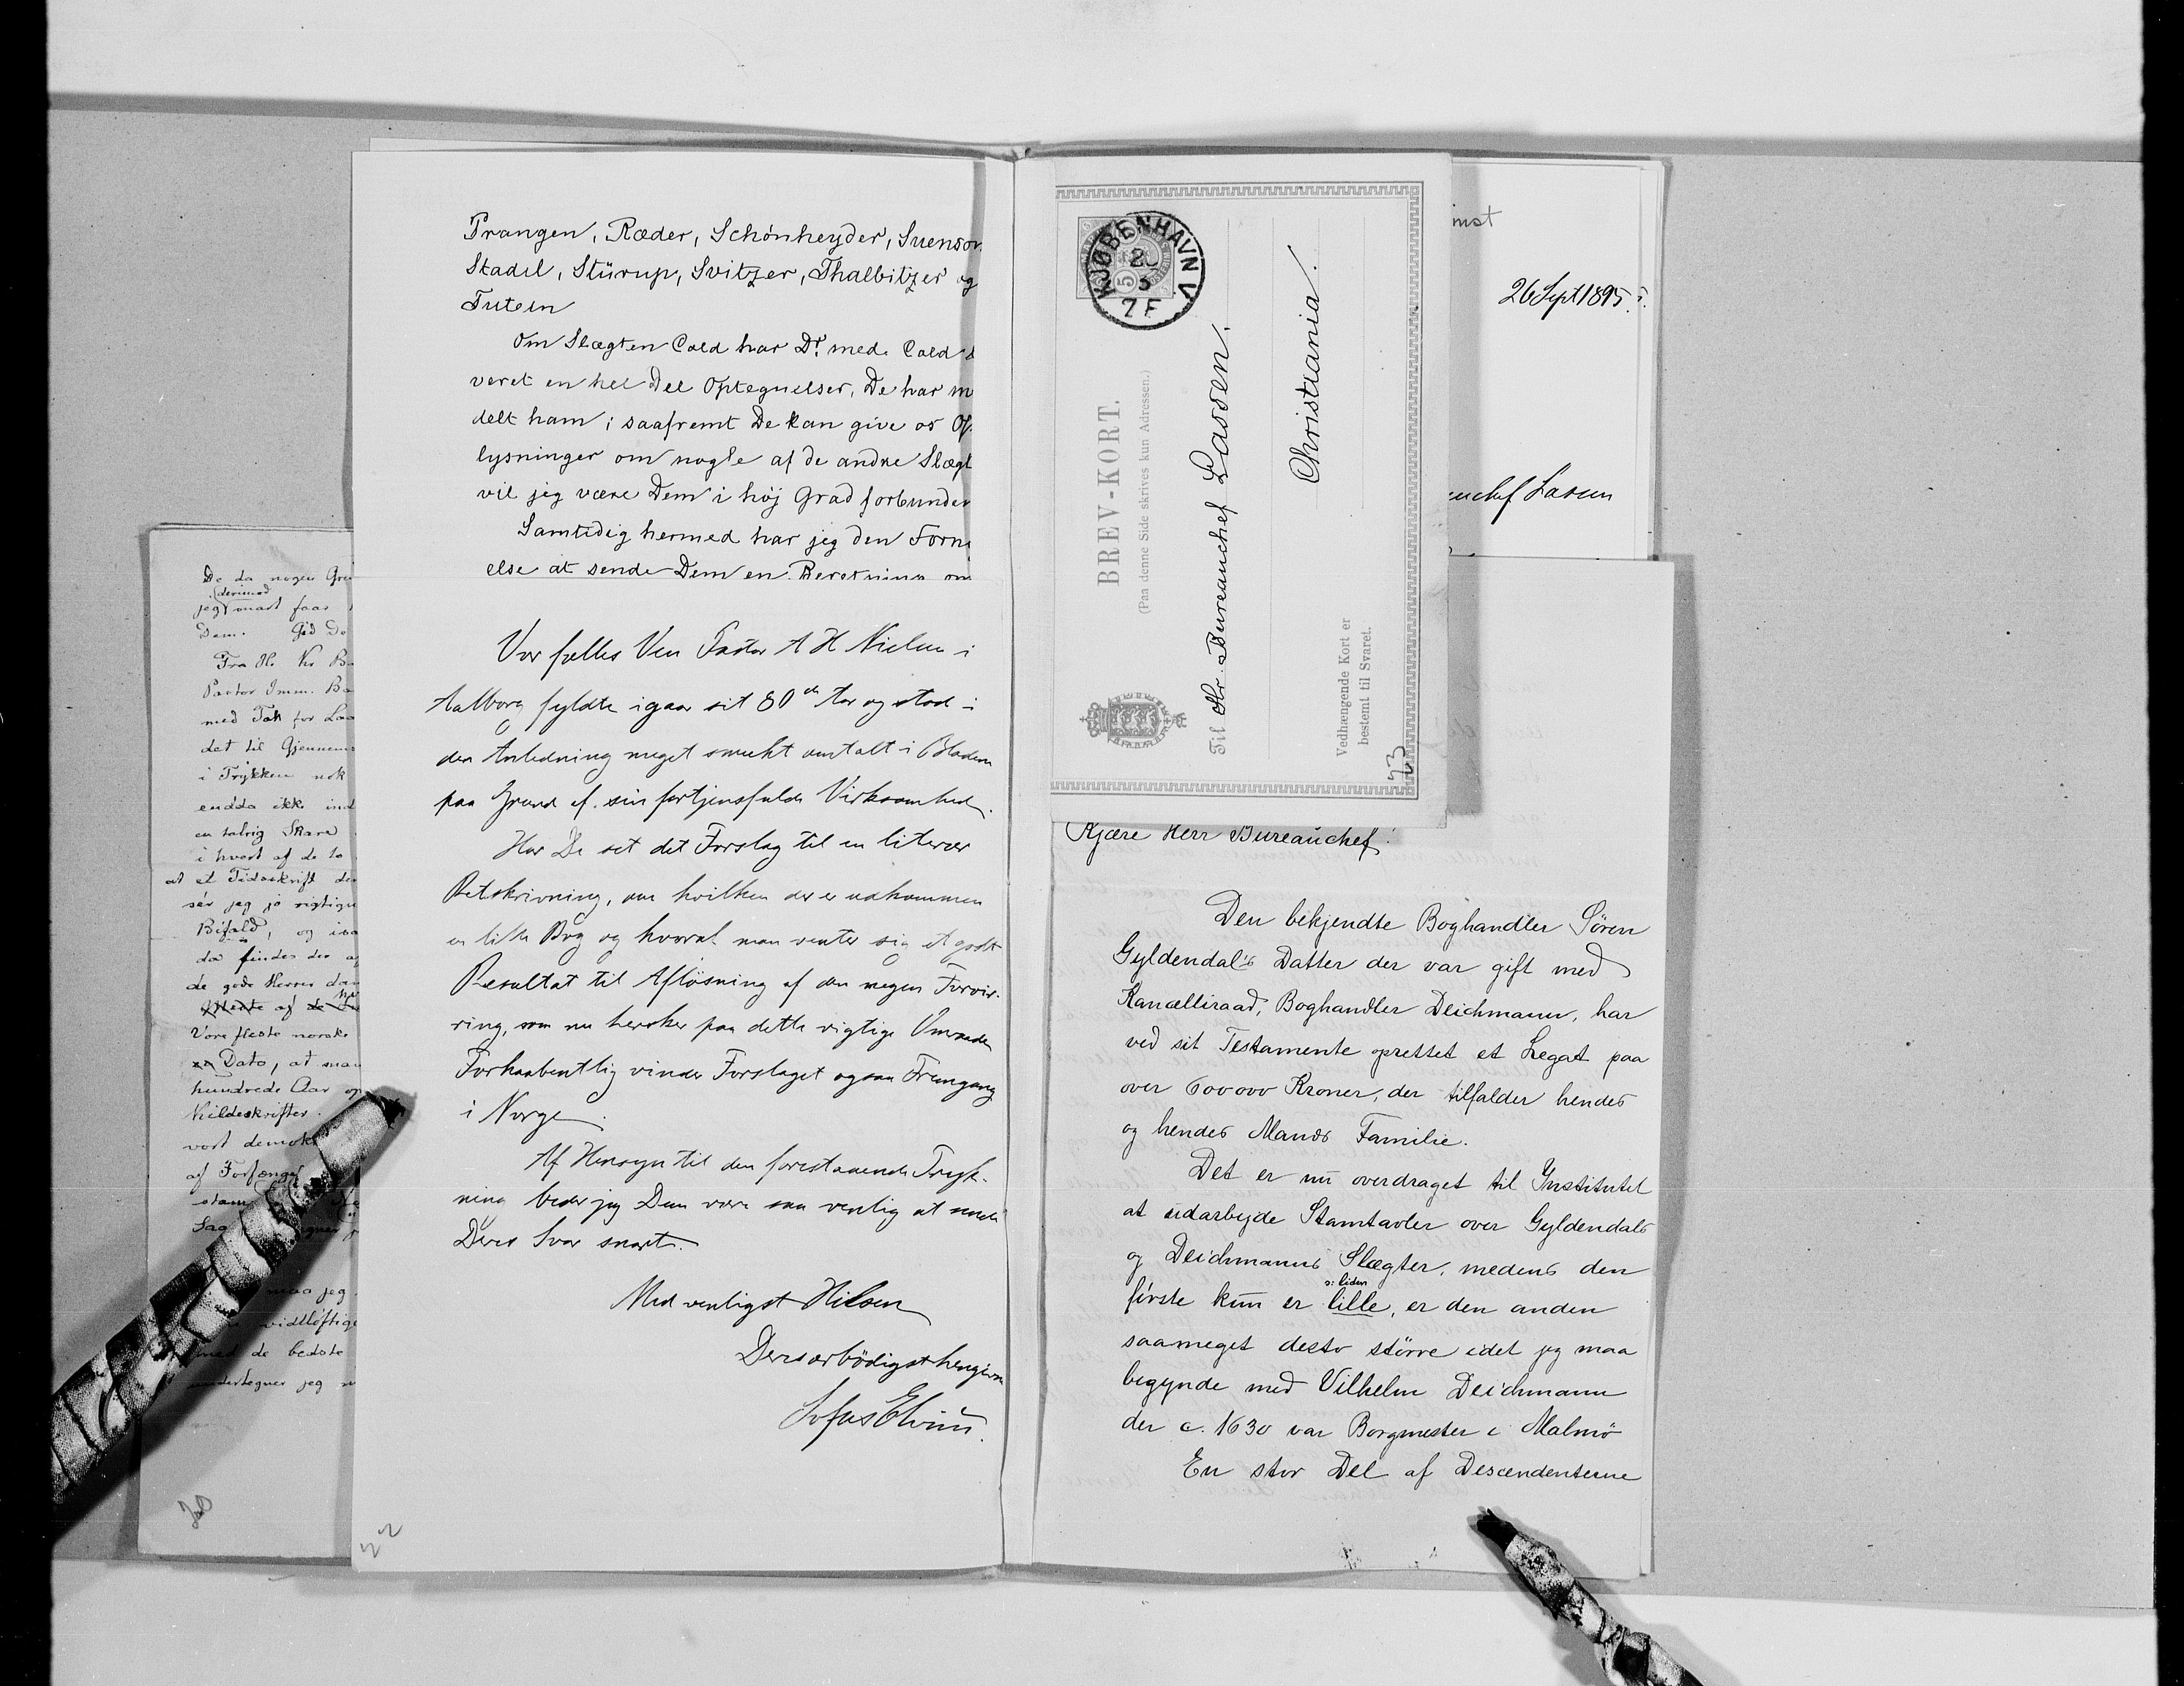 De da nogen
(derimod
jeg snart faar
Dem. Gid De
Fra Hr.
Pastor Imm. Ba
med Tak for Laa
det til Gjennem
i Trykken nok
endda ikke ind
en talrig Skare
i hvert af de to
at et Tidsskrift de
ser jeg jo rigtign
Bifald, og
da findes der a
de gode Herrer dan
af
Vore fleste norske
Dato, at man
hundrede Aar op
Kildeskrifter.
vort demok
af Forfænge
stam
Sag
maa jeg
vidtløftig
med de bedste
undertegner jeg
Prangen, Ræder, Schönheyder, Suenson
Stadel, Stürup, Svitzer, Thalbitzer og
Tutein
Om Slægten Cold har Dr. med. Cold
veret en hel Del Optegnelser, De har m
delt ham; saafremt De kan give os Op
lysninger om nogle af de andre Slægt
vil jeg være Dem i høj Grad forbunden
Samtidig hermed har jeg den Forn
else at sende Dem en Beretning om
Vor fælles Ven Pastor A H Nielsen i
Aalborg fyldte igaar sit 80de Aar og stod i
den Anledning meget smukt omtalt i Bladene
paa Grund af sin fortjensfulde Virksomhed.
Har De set det Forslag til en literær
Retskrivning, om hvilken der er udkommen
en lille Bog og hvoraf man venter sig et godt
Resultat til Afløsning af den megen Forvir-
ring, som nu hersker paa dette vigtige Omraade
Forhaabentlig vinder Forslaget ogsaa Fremgang
i Norge.
Af Hensyn til den forestaaende Tryk-
ning beder jeg Dem være saa venlig at sende
Deres Svar snart.
Med venligst Hilsen
Deres ærbödigst hengivne
Sofus Elvius.
22
KJØBENHAVN V.
2
5
7 F
5
BREV-KORT.
(Paa denne Side skrives kun Adressen.)
Til Hr. Bureauchef Lassen.
Christiania.
Vedhængende Kort er
bestemt til Svaret.
23
inst
26 Sept 1895.
uchef Lassen
Kjære Herr Bureauchef!
Den bekjendte Boghandler Sören
Gyldendal's Datter der var gift med
Kancelliraad, Boghandler Deichmann, har
ved sit Testamente oprettet et Legat paa
over 600000 Kroner, der tilfalder hendes
og hendes Mands Familie.
Det er nu overdraget til Institutet
at udarbejde Stamtavler over Gyldendals
og Deichmanns Slægter, medens den
ɔ: liden
første kun er lille, er den anden
saameget desto större idet jeg maa
begynde med Vilhelm Deichmann
der c. 1630 var Borgmester i Malmö
En stor Del af Descendenterne